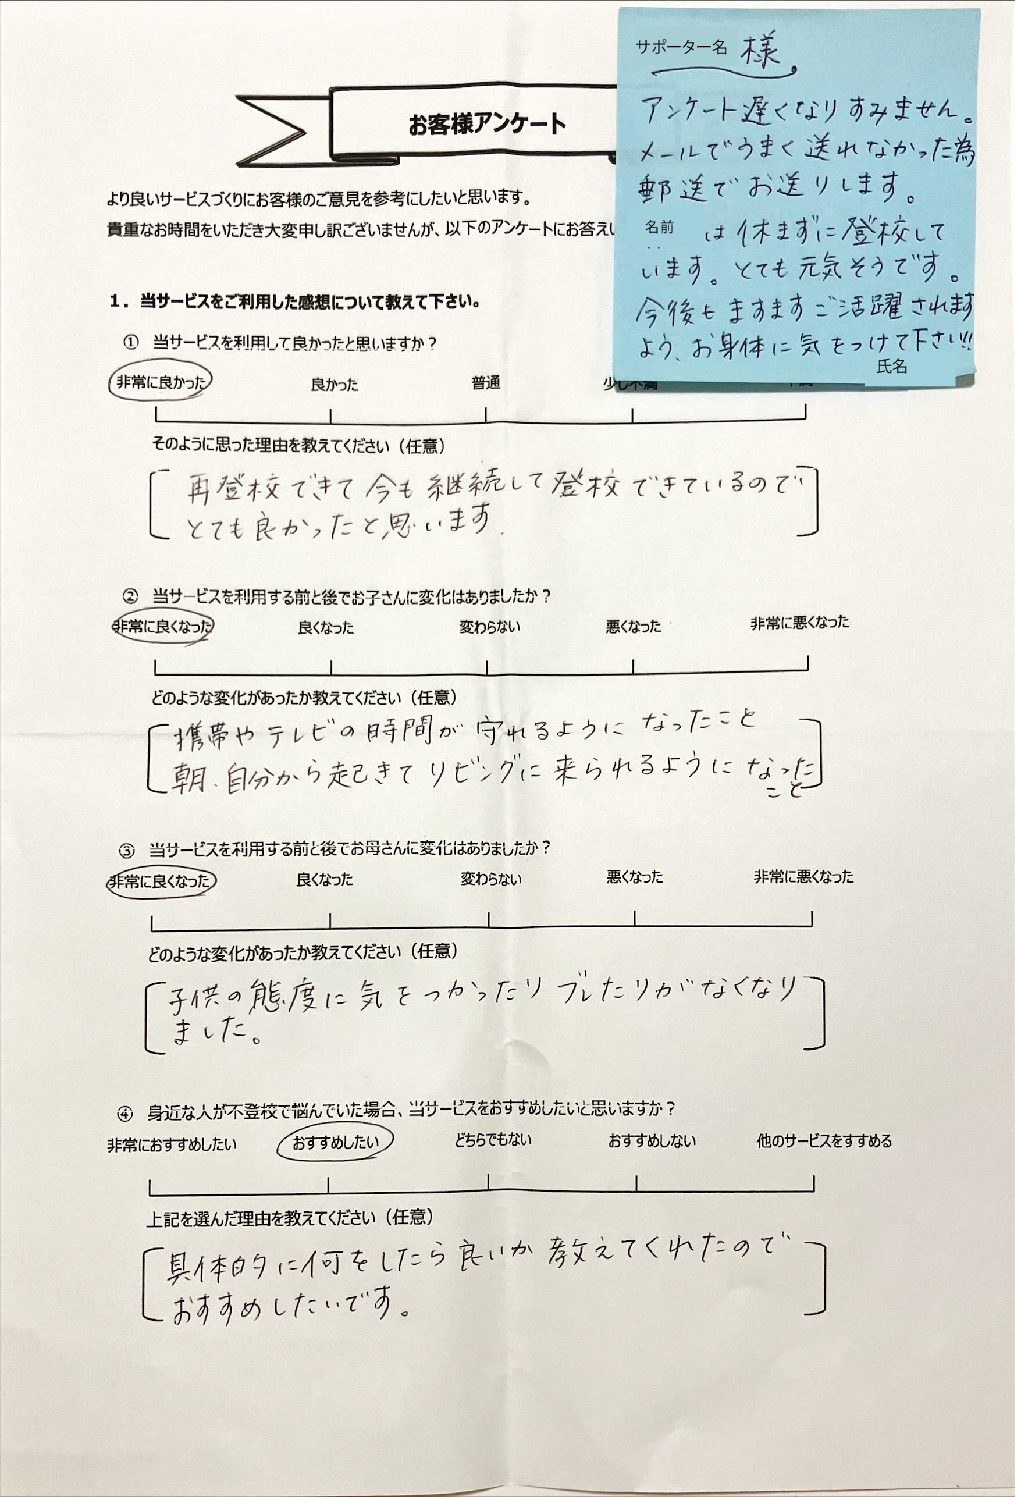 お客様アンケート
より良いサービスづくりにお客様のご意見を参考にしたいと思います。
貴重なお時間をいただき大変申し訳ございませんが、以下のアンケートにお答えい
サポーター名 様
アンケート遅くなりすみません。
メールでうまく送れなかった為
郵送でお送りします。
名前 は休まずに登校して
います。とても元気そうです。
今後もますますご活躍されます
よう、お身体に気をつけて下さい!!
氏名
1．当サービスをご利用した感想について教えて下さい。
① 当サービスを利用して良かったと思いますか？
非常に良かった 良かった 普通 少し不満
そのように思った理由を教えてください（任意）
再登校できて今も継続して登校できているので
とても良かったと思います.
② 当サービスを利用する前と後でお子さんに変化はありましたか？
非常に良くなった 良くなった 変わらない 悪くなった 非常に悪くなった
どのような変化があったか教えてください（任意）
携帯やテレビの時間が守れるようになったこと
朝、自分から起きてリビングに来られるようになった
こと
③ 当サービスを利用する前と後でお母さんに変化はありましたか？
非常に良くなった 良くなった 変わらない 悪くなった 非常に悪くなった
どのような変化があったか教えてください（任意）
子供の態度に気をつかったりブレたりがなくなり
ました。
④ 身近な人が不登校で悩んでいた場合、当サービスをおすすめしたいと思いますか？
非常におすすめしたい おすすめしたい どちらでもない おすすめしない 他のサービスをすすめる
上記を選んだ理由を教えてください（任意）
具体的に何をしたら良いか教えてくれたので
おすすめしたいです。